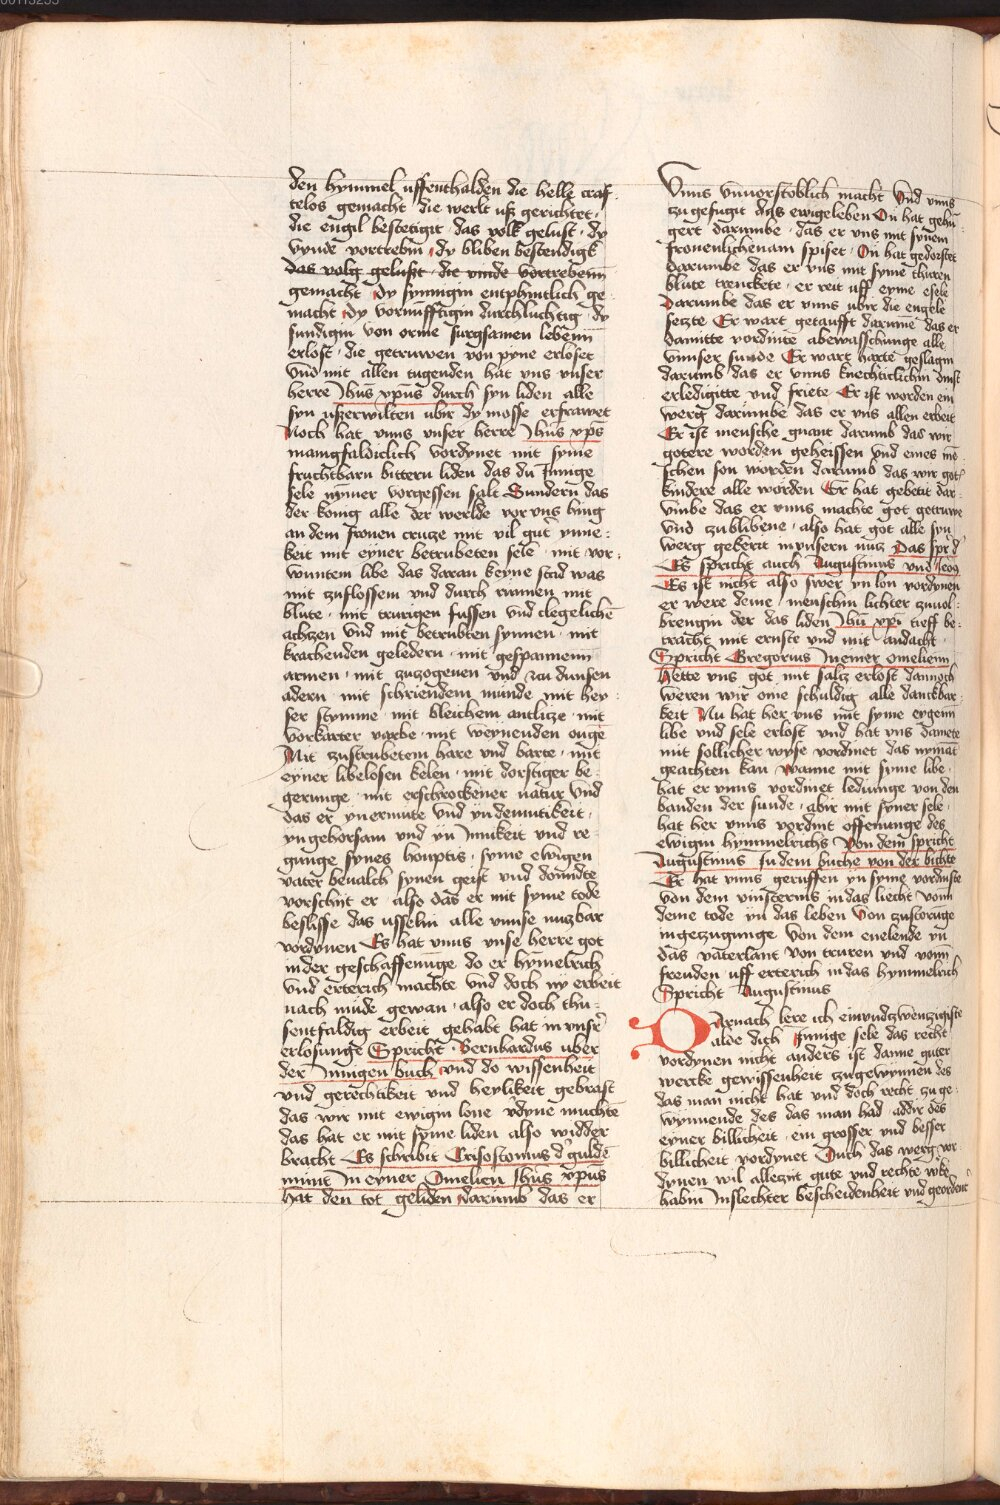 den hymmel uffenthalden die helle craf-
telos gemacht die werlt usz gerichtet
die engil bestetigit das volk gelust dy
vynde vortrebin dy bliben bestendigk
das volg gelusst die vinde vortrebenn
gemacht dy synnigin entphintlich ge
macht dy vornufftigin durchluchtig dy
sundigin von orme surgsamen lebenn
erlost die getruwen von pyne erloset
vnd mit allen tugenden hat vns vnser
herre Jhus xpus durch syn liden alle
syn uszerwilten ubir dy mosse erfrawet
Noch hat vnns vnser herre Jhus xps
manigfaldiclich vordynet mit syme
fruchtbarn bittern liden das du Jnnige
sele nymer vorgessen salt Sundern das
der konig alle der werlde vor vns hing
an dem fronen cruze mit vil gut ynne-
keit mit eyner betrubeten sele mit vor-
wuntem libe das daran keyne stad was
mit zuflossem und durch runnen mit
blute mit trurigen fussen vnd clegelichē
achzen vnd mit betrubten synnen mit
krachenden geledern mit gespannenn
armen mit zuzogenen vnd zcu dunsen
adern mit schriendem munde mit hey-
ser stymme mit bleichem antlitze mit
vorkarter varbe mit weynenden ouge
Mit zustrubetem hare und barte mit
eyner libelosen kelen mit dorstiger be-
gerunge mit erschrockener natur vnd
das er yn ermute vnd yn demutikeit
yn gehorsam und yn Jnnikeit vnd re-
gunge synes houptis syme ewigen
vater beualch synen geist vnd domidte
vorschit er also das er mit syme tode
beslisse das uffelin alle vnnse nuzbar
vordynen Es hat vnns vnse herre got
in der geschaffenunge do er hymelrich
vnd erterich machte vnd doch ny erbeit
nach mude gewan also er doch thu-
sentfaldig erbeit gehabt hat in vnser
erlosunge Spricht Bernhardus uber
der Jnnigen buch vnd do wissenheit
vnd gerechtikeit vnd heylikeit gebrast
das wir mit ewigm lone vdyne muchtē
das hat er mit syme liden also widder
bracht Es schribit Crisostomus d' guldē
munt Jn eyner Omelien Jhus xpus
hat den tot geliden darumb das er
Vnns vnuorstoblich macht Vnd vnns
zu gefugit das ewige leben On hat gehū
gert darumbe das er vns mit synem
fronenlichenam spiset On hat gedorstet
darumbe das er vns mit syme thuren
blute trenckete er reit uff eyme esele
Darumbe das er vnns ubir die engele
setzte Er wart getaufft darume das er
damitte vordinte abewasschunge alle
vnnser sunde Er wart harte geslagin
darumb das er vnns knechticlichin dinst
erledigitte vnd friete Er ist worden ein
werg darumbe das er vns allen erbeit
Er ist mensche gnant darumb das wir
gotere worden geheissen vnd eines mē-
schen son worden darumb das wir got'
kindere alle worden Er hat gebetit dar-
umbe das er vnns machte got getruwe
vnd zu blibene also hat got alle syn
werg gekerit in vnsern nuz Das spr'd'
Es spricht auch Augustinus vnd Jeog
Es ist nicht also swer yn lon vordynen
er were deine menschin lichter zuuol-
brengin der das liden Jhu xpi tieff be-
tracht mit ernste und mit andacht
Spricht Gregorius Jn einer omelienn
Hette vns got mit saltz erlost dannoch
weren wir ome schuldig alle danckbar-
keit Nu hat her vns mit syme eygenn
libe vnd sele erlost vnd hat vns damete
mit sollicher wyse vordinet das nymāt
geachten kan wanne mit syme libe
hat er vnns vordinet ledunge von den
banden der sunde abir mit syner sele
hat her vnns vordint offenunge des
ewigin hymmelrichs Von dem spricht
Augustinus Jn dem buche von der bichte
Er hat vnns geruffen yn syme vordinste
von dem vinsternis in das liecht vonn
deme tode yn das leben von zustorunge
in gezugunge von dem enelende yn
das vaterlant von truren vnd vonn
freuden uff erterich in das hymmelrich
Spricht Augustinus
Darnach lere ich einvndzwenzigiste
alde dich Jnnige sele das recht
vordynen nicht anders ist danne guter
wercke gewissenheit zugewynnen des
das man nicht hat vnd doch recht zu ge-
wynnende des das man had addir des
eyner billicheit ein grosser vnd besser
billicheit vordynet Ouch das werg vor
dynen wil allezyt gute vnd rechte wbe
habin Jn slechter bescheidenheit vnd geordent